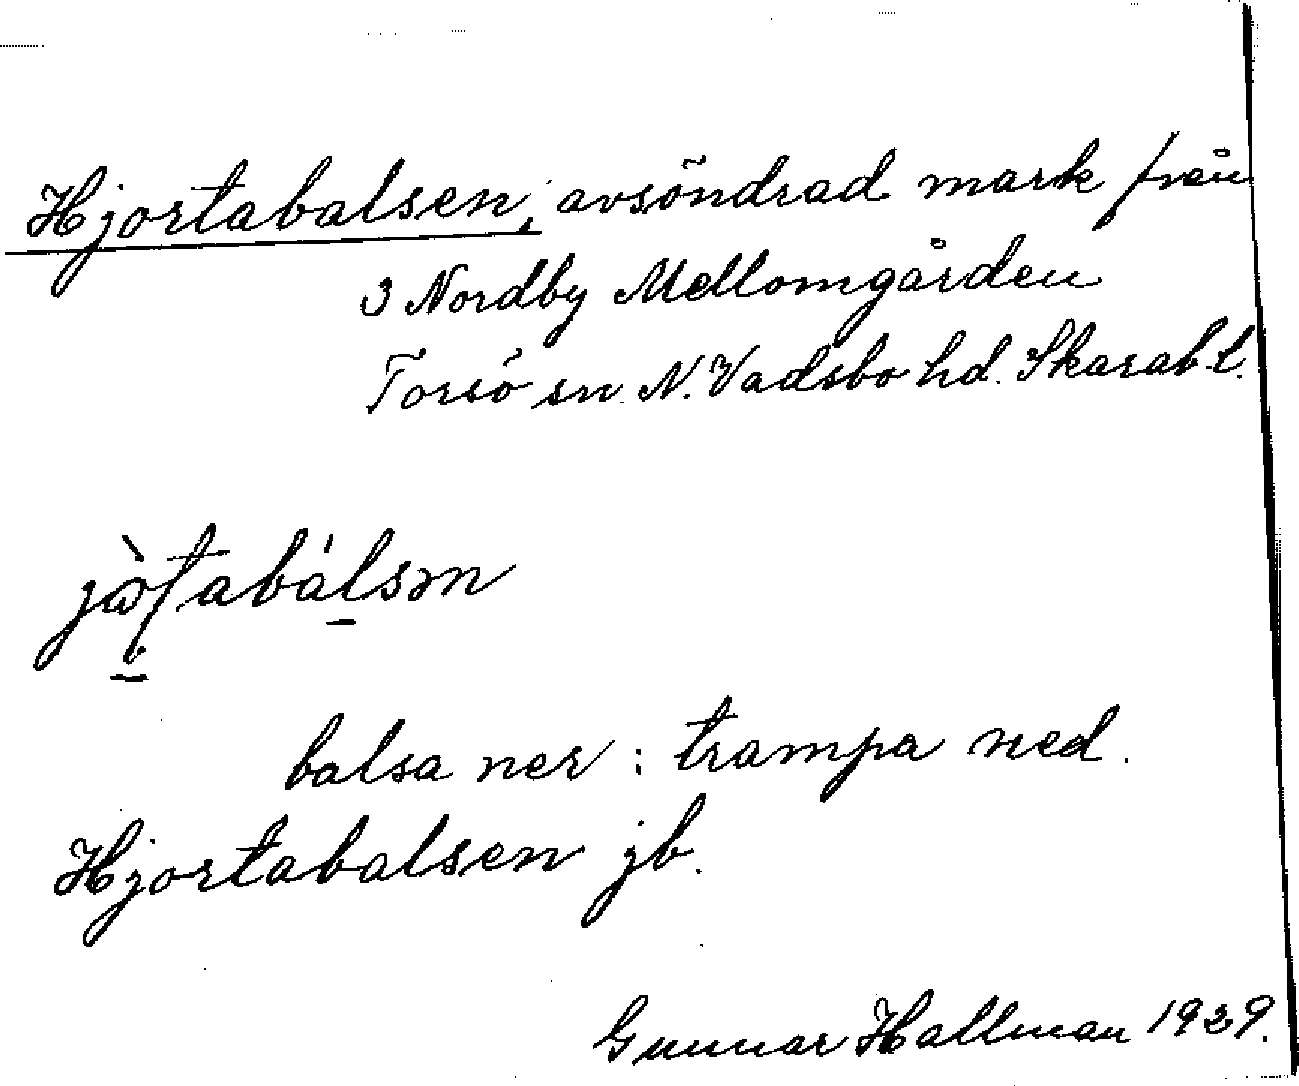 Hjortabalsen, avsöndrad mark från
3 Nordby Mellomgården
Torsö sn N. Vadsbo hd. Skarab. l.
balsa ner : trampa ned.
Hjortabalsen jb.
Gunnar Hallman 1929.